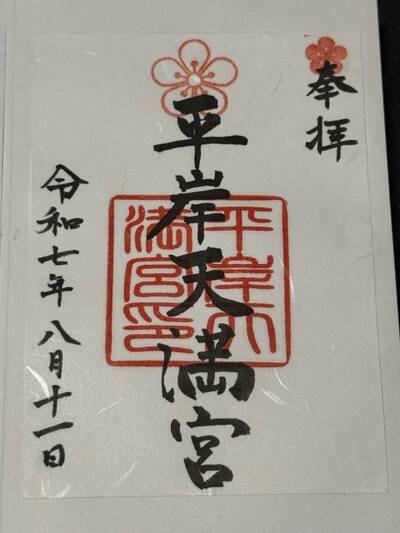 奉拝
平岸天満宮
平岸天
満宮印
令和七年八月十一日